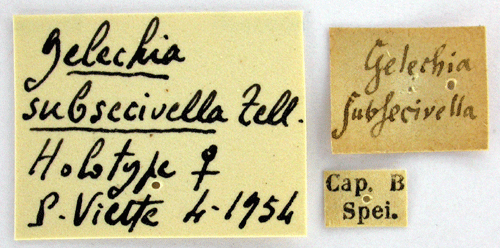 Gelechia
subsecivella Zell.
Holotype ♀
P. Viette 4-1954
Gelechia
subsecivella
Cap. B
Spei.